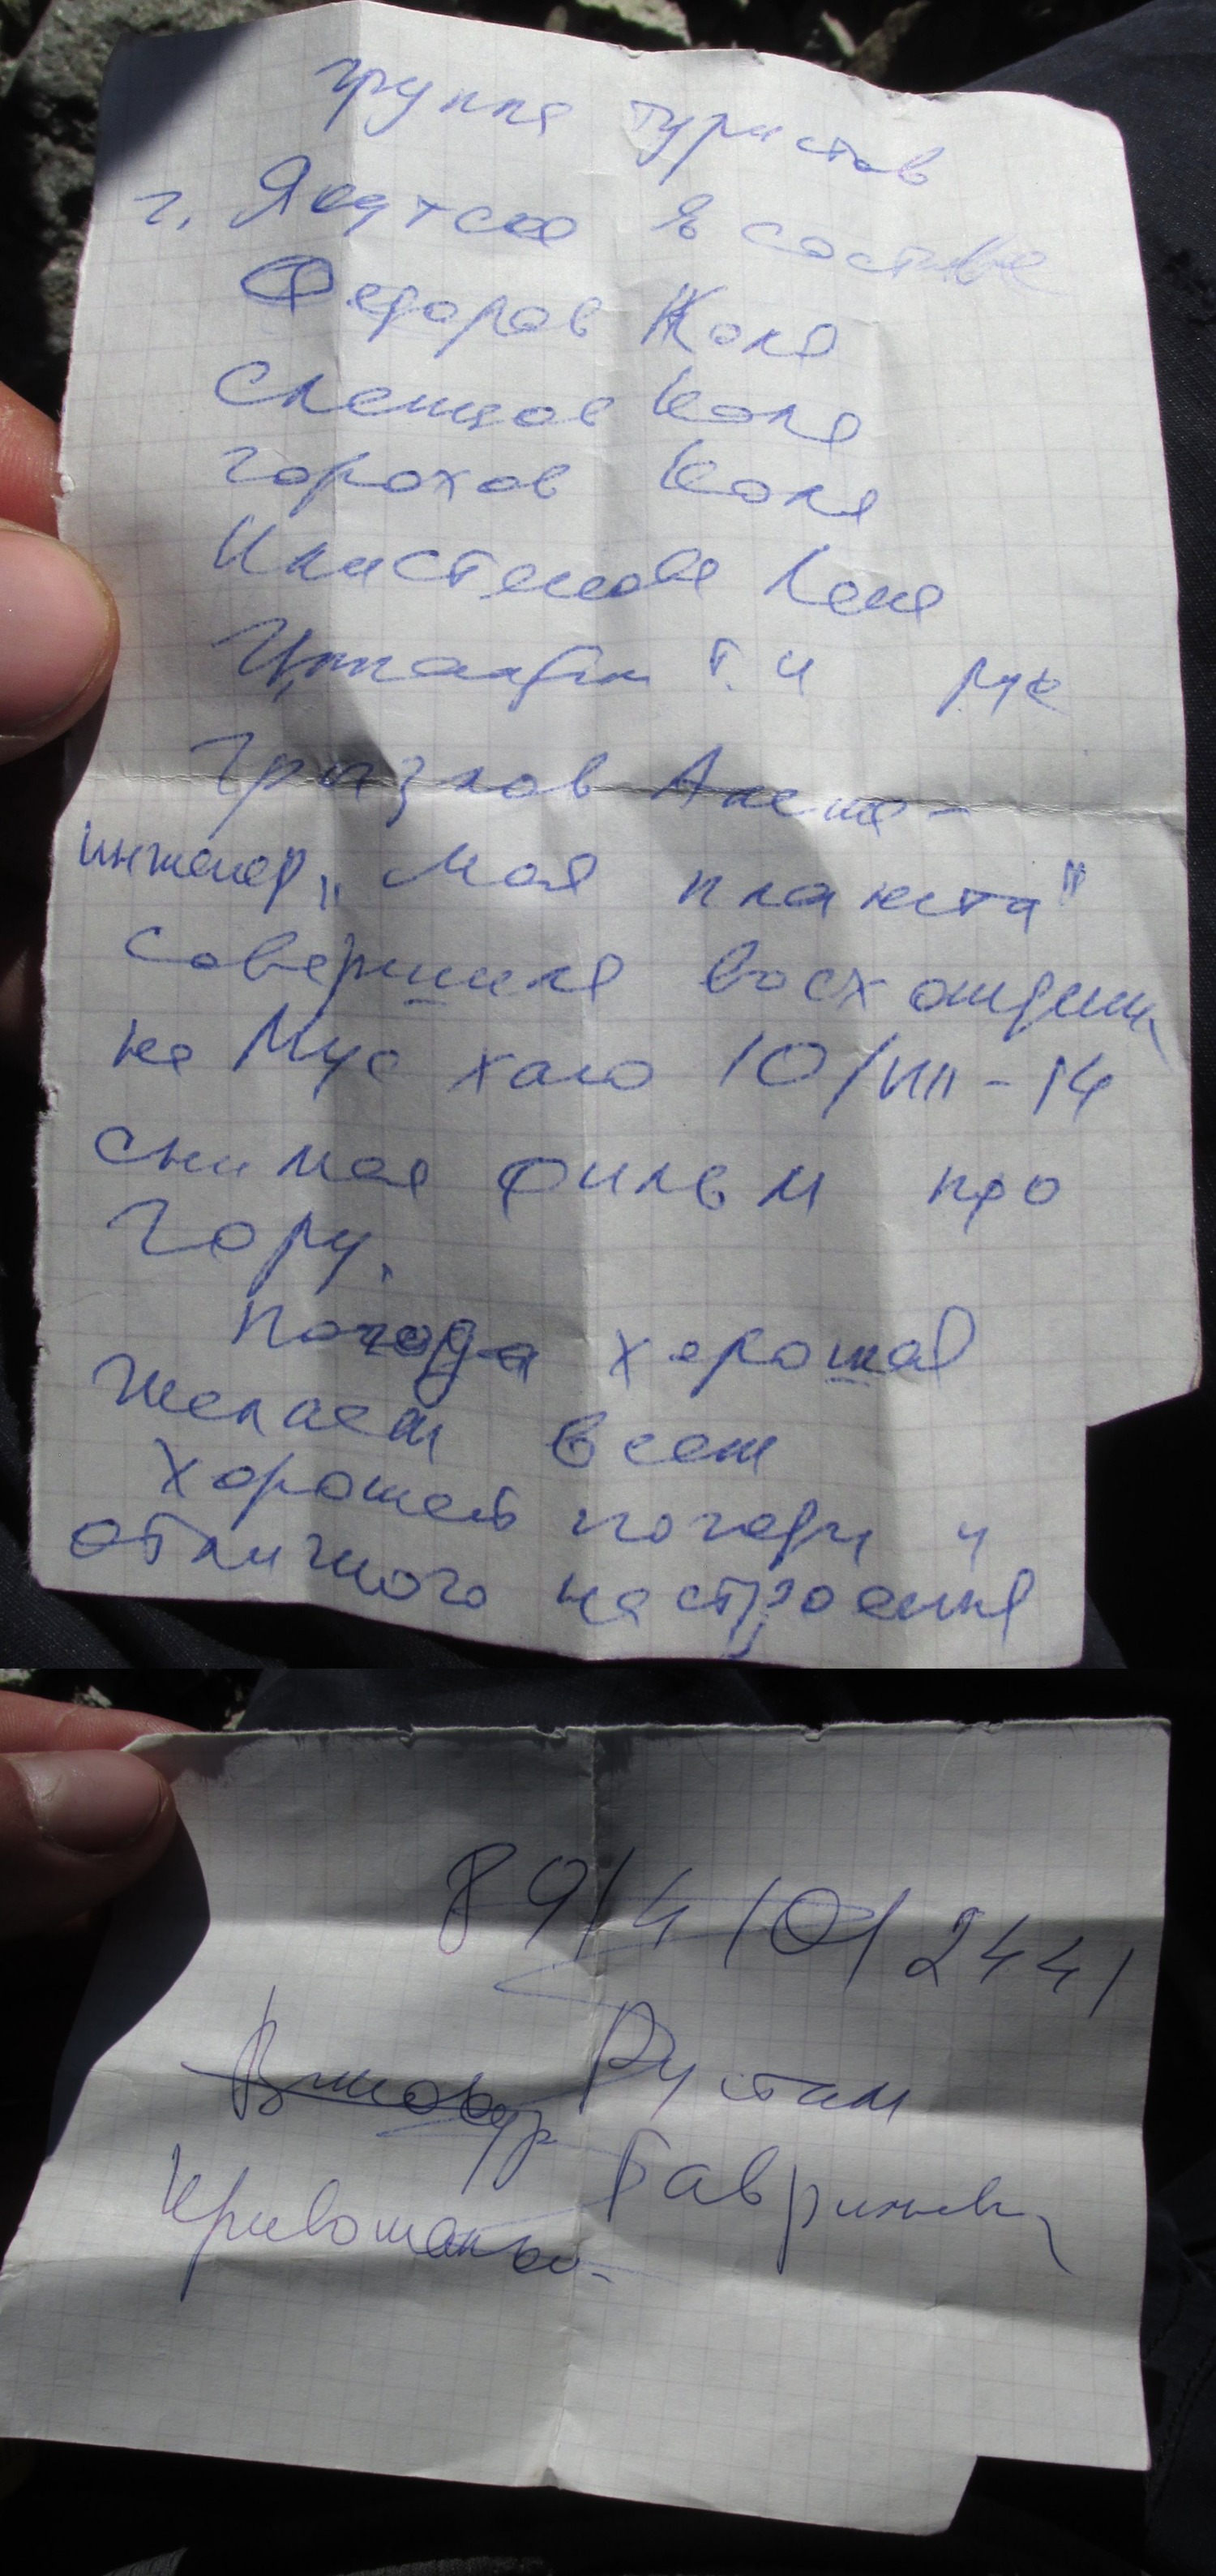 группа туристов
г. Якутска в составе
Федоров Коля
Слепцов Коля
Горохов Коля
Илистенова Лена
Т. И рук
Грязнов Алеша -
инженер „Моя планета"
совершила восхождение
на Мус хаю 10/VIII - 14
снимая фильм про
гору.
Погода хорошая
Желаем всем
хорошей погоды и
отличного настроения
8914 101 2441
Рустам
Гаврильев